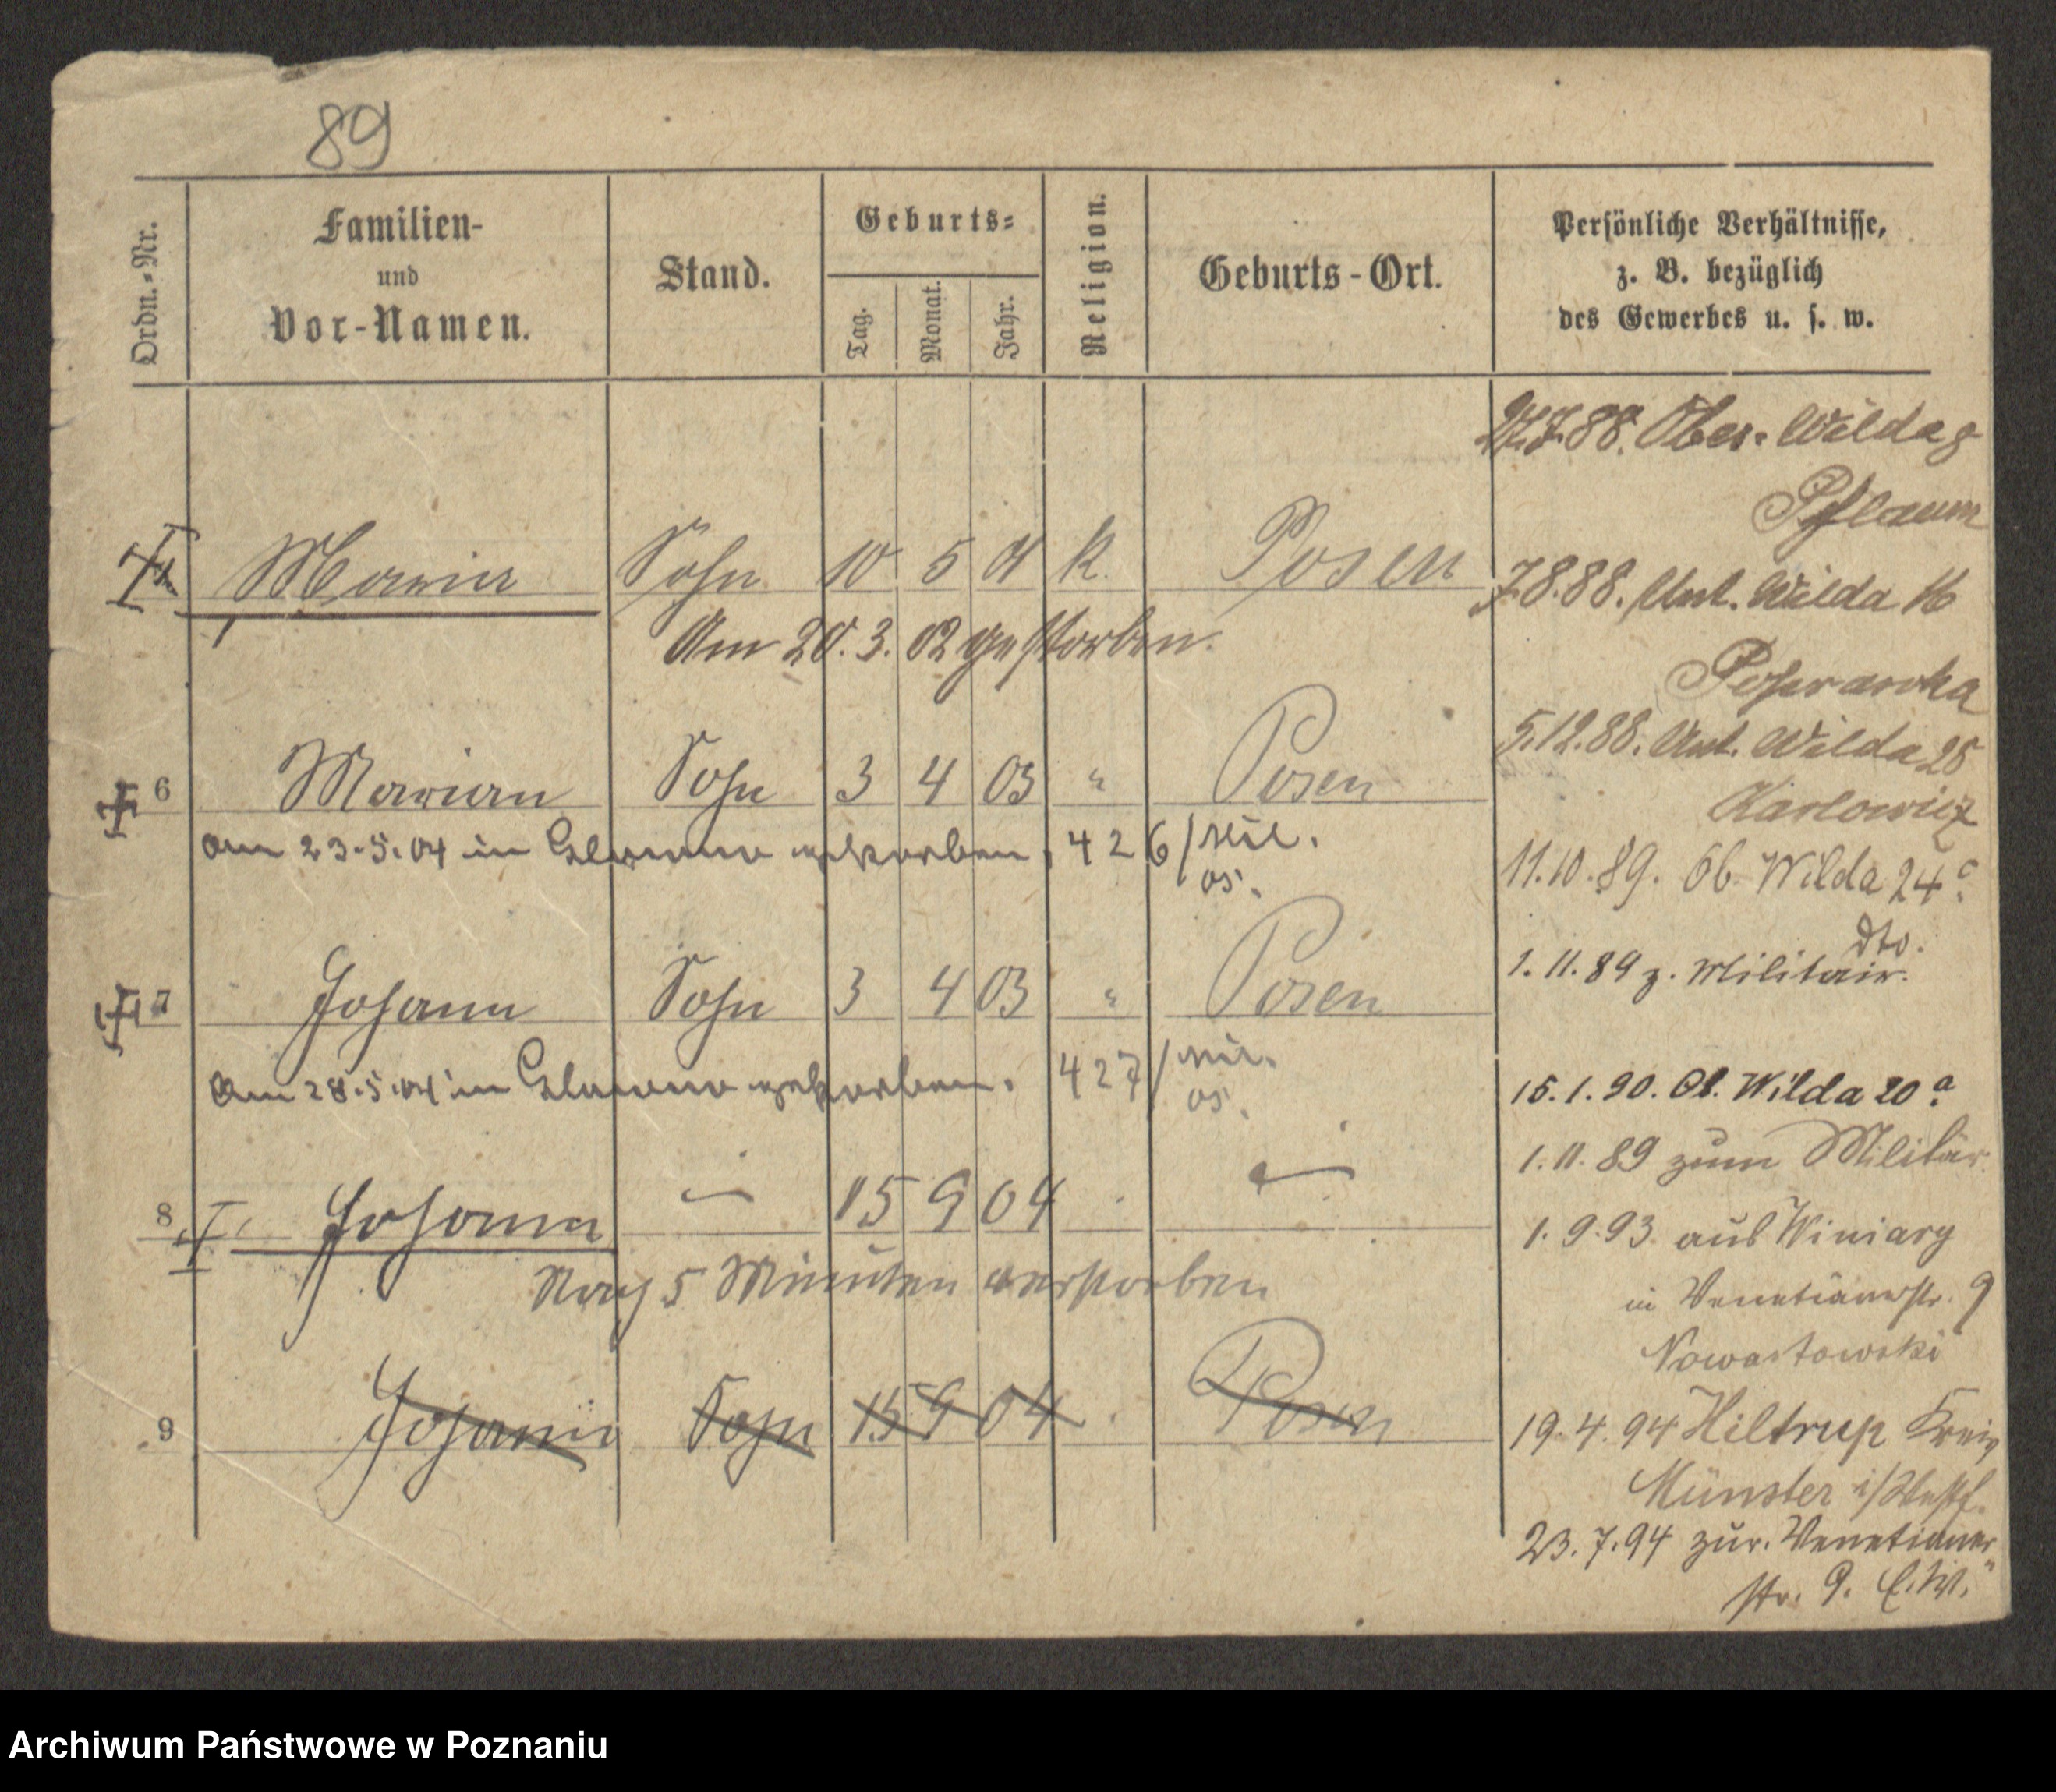 89
Ordn.-Nr.
Familien-
und
Vor-Namen.
Stand.
Geburts-
Tag.
Monat.
Jahr.
Religion.
Geburts-Ort.
Persönliche Verhältnisse,
z. B. bezüglich
des Gewerbes u. s. w.
Sohn 10 5 k. Posen
Am 20. 3. 02 gestorben.
6 Marian Sohn 3 4 03 " Posen
am 23.5.04 in gestorben, 426/
05.
7 Johann Sohn 3 4 03 " Posen
am 28.5.04 in gestorben. 427/
05.
8 Johann — 15 9 04 —
Nach 5 Minuten verstorben
9 Johann Sohn 15 9 04 Posen
27.7.88. Ober-Wilda 9
Pflaum
7.8.88. Unt. Wilda 16
5.12.88. Unt. Wilda 25
Karlowicz
11.10.89. Ob. Wilda 24c.
dto.
1. 11. 89 z. Militair.
15. 1. 90. Ob. Wilda 20a.
1. 11. 89 zum Militär
1. 9. 93. aus Winiary
in Venetianerstr. 9
Nowastowski
19. 4. 94 Hiltrup Kreis
Münster i/Westf.
23. 7. 94 zur. Venetianer
str. 9.
Archiwum Państwowe w Poznaniu